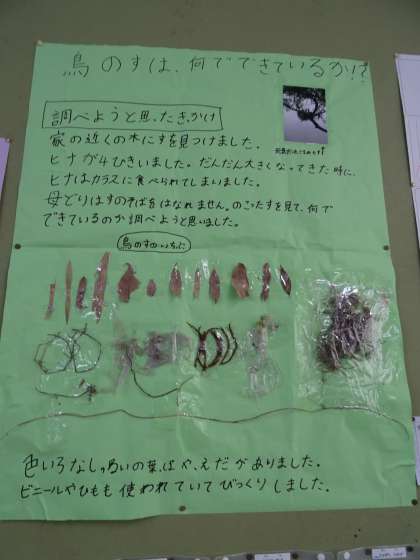 鳥のすは、何でできているか!?
調べようと思ったきっかけ
家の近くの木にすを見つけました。
ヒナが4ひきいました。だんだん大きくなってきた時に、
ヒナはカラスに食べられてしまいました。
母どりはすのそばをはなれません。のこったすを見て、何で
できているのか調べようと思いました。
鳥のすのいちぶ
色いろなしゅるいの葉、はや、えだがありました。
ビニールやひもも使われていてびっくりしました。